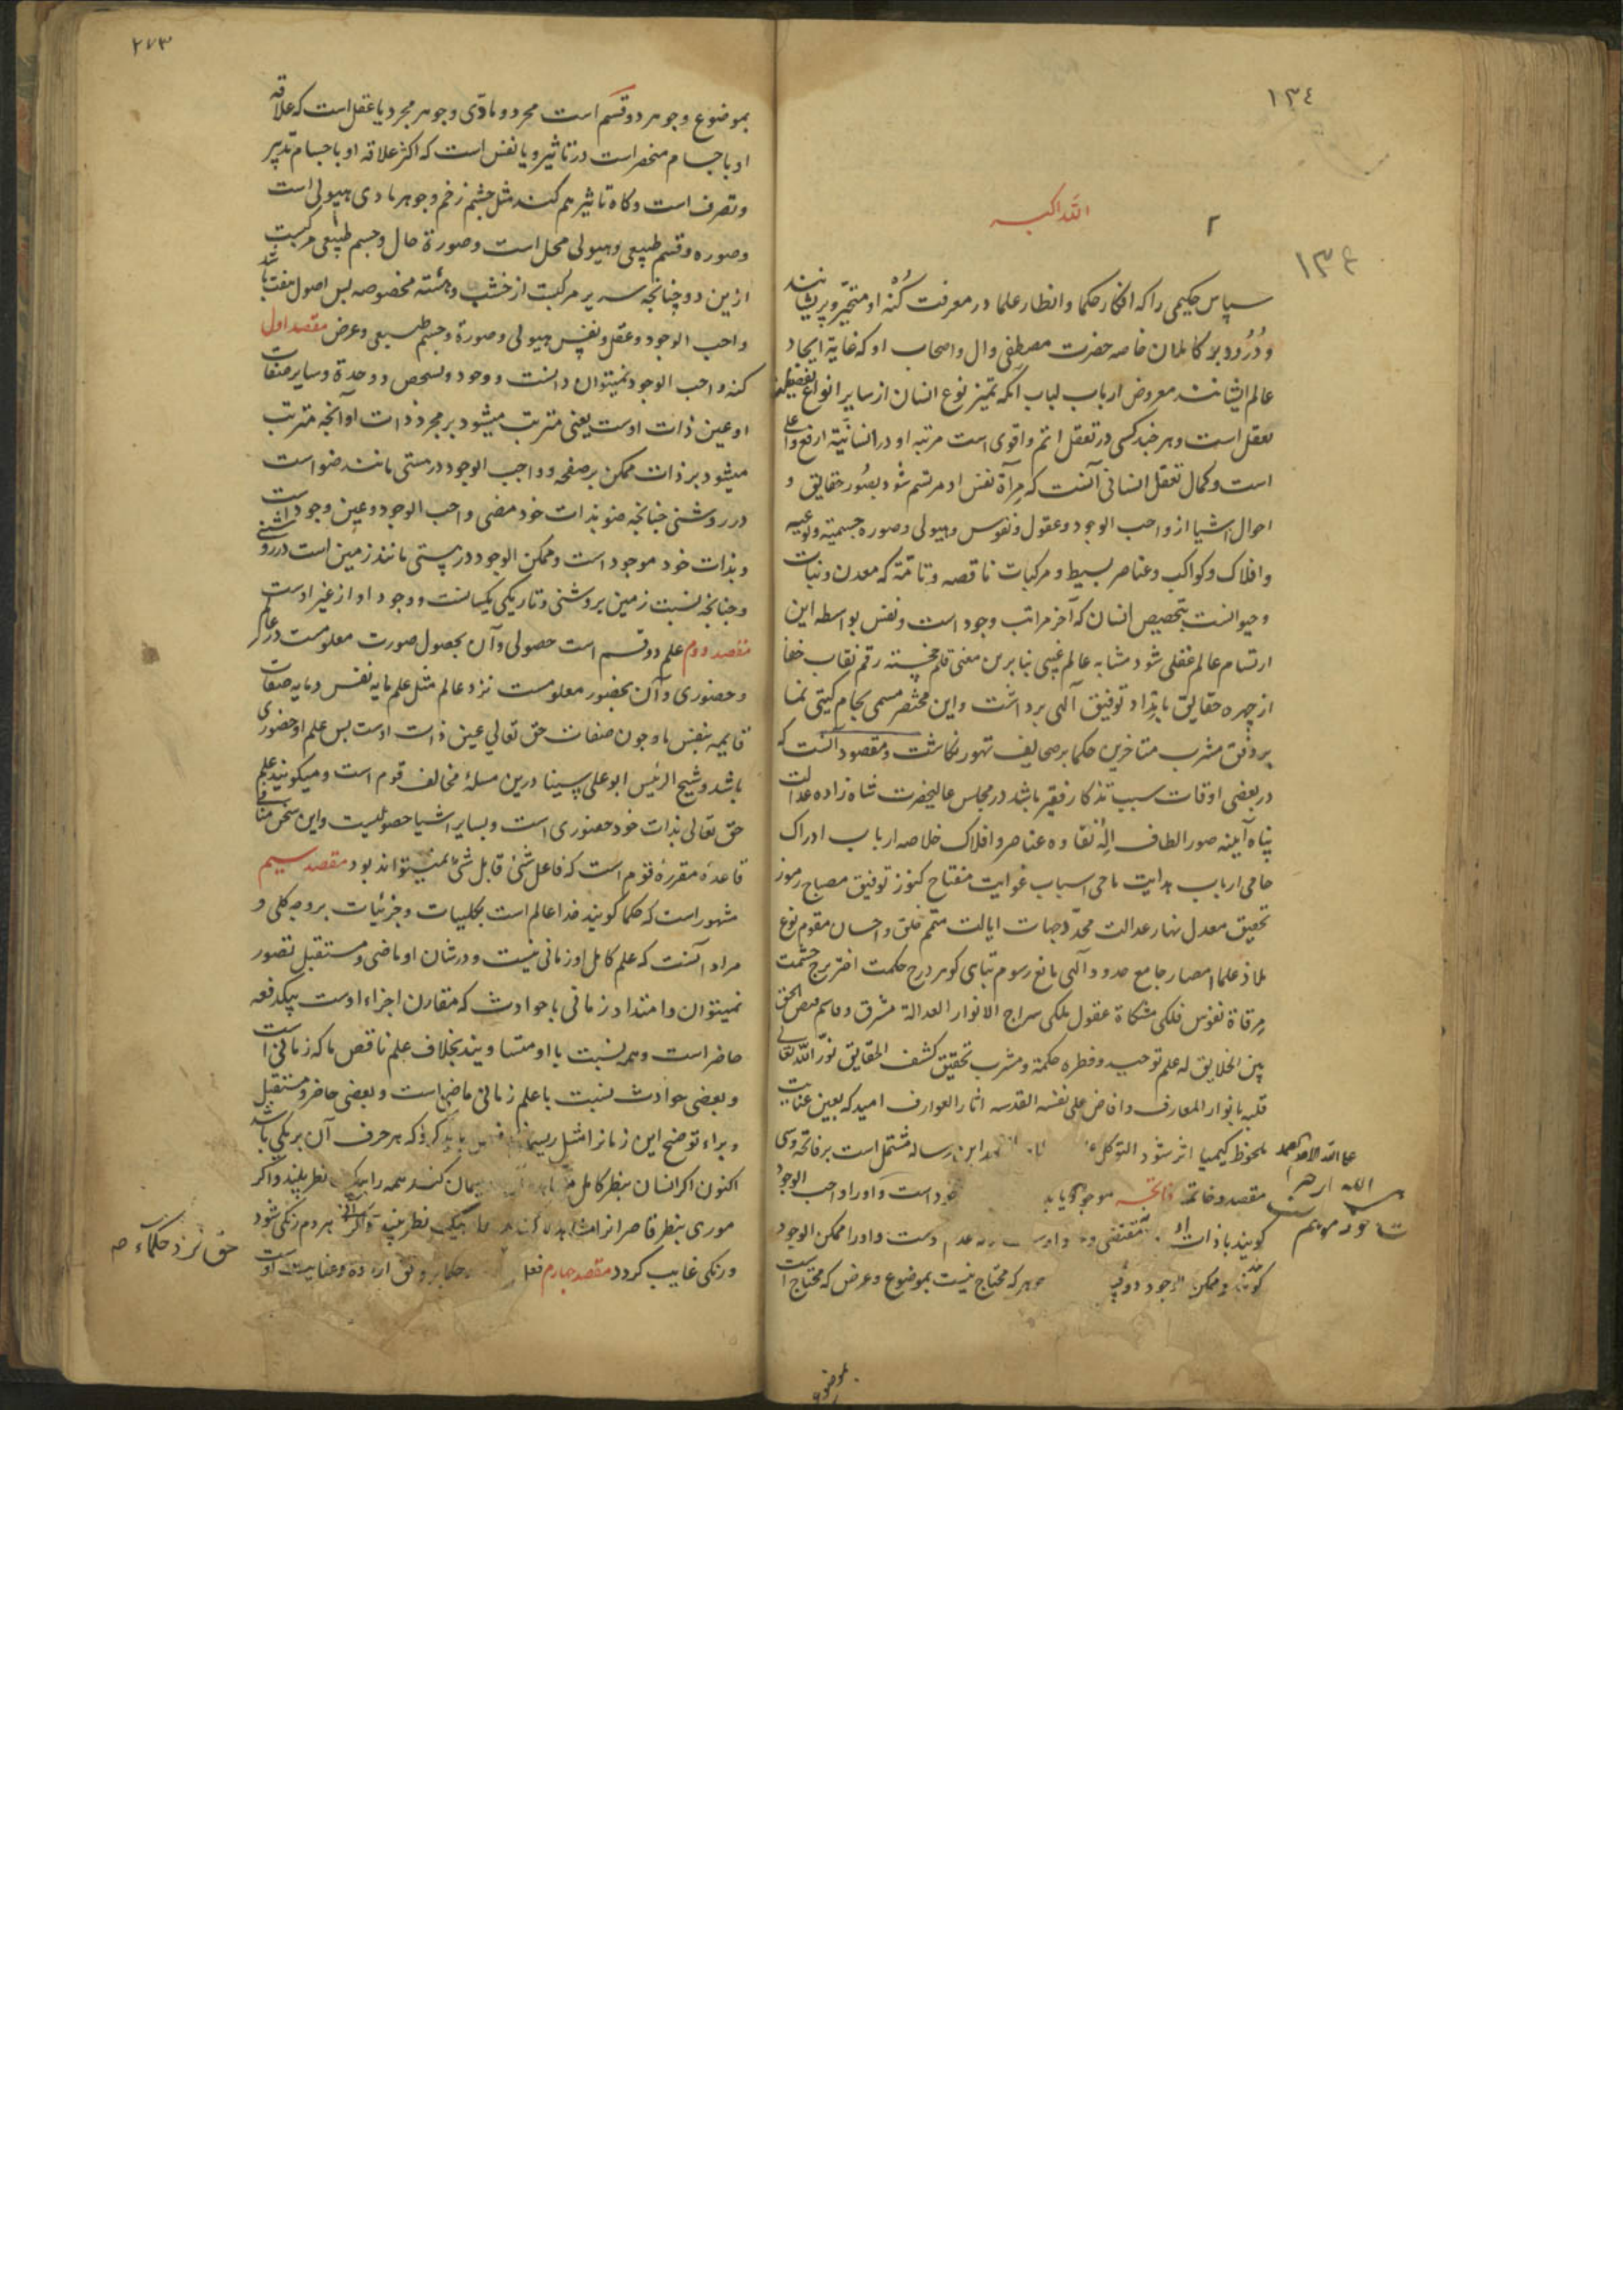 ١٣٤
٢
الله اکبر
١٣٤
سپاس حکیمی را که افکار حکما و انظار علما در معرفت کُنْه او متحیّر و پریشانند
و دُرُود بر کاملان خاصه حضرت مصطفی و ال و اصحاب او که غایة ایجاد
عالم ایشانند معروض ارباب لباب آنکه تمیز نوع انسان از سایر انواع
تعقل است و هر چند کسی در تعقل اتم و اقوی است مرتبه او در انسانیّة ارفع و اعلی
است و کمال تعقل انسانی آنست که مرآة نفس او مرتسم شود بصُور حقایق و
احوال اشیا از واجب الوجود و عقول و نفوس و هیولی و صوره جسمیه و نوعیه
و افلاک و کواکب و عناصر بسیط و مرکبات ناقصه و تامّة که معدن و نبات
و حیوانست بتخصیص انسان که آخر مراتب وجود است و نفس بواسطه این
ارتسام عالم عقلی شود مشابه عالم عینی بنا برین معنی قلم خجسته رقم نقاب خفا
از چهره حقایق بامداد توفیق آلهی برداشت و این مختصر مسمی بجام گیتی نما
بر وفق مشرب متاخرین حکما بر صحایف ظهور نکاشت و مقصود آنست که
در بعضی اوقات سبب تذکار فقیر باشد در مجلس عالیحضرت شاه زاده عدالت
پناه آیینه صور الطاف اله نقاوه عناصر و افلاک خلاصه ارباب ادراک
حامی ارباب هدایت ماحی اسباب غوایت مفتاح کنوز توفیق مصباح رموز
تحقیق معدل نهار عدالت محدّد جهات ایالت متمم خلق و احسان مقوم نوع
ملاذ علما امصار جامع حدود آلهی مانع رسوم تباهی کوهر درج حکمت اختر برج حشمت
مرقاة نفوس فلکی مشکاة عقول ملکی سراج الانوار العدالة مشرق و قاسم فیض الحق
بین الخلایق له علم توحید و فطره حکمة و مشرب تحقیق کشف الحقایق نوّر الله تعالی
قلبه بانوار المعارف و افاض علی نفسه القدسه اثار العوارف امید که بعین عنایت
ملحوظ کیمیا اثر شود التوکل علی الله الاحد الصمد این رساله مشتمل است بر فاتحه و سی
مقصد و خاتمه فاتحه موجود یا باید خود است و او را واجب الوجود
کویند یا ذات او مقتضی وجود او عدم است و او را ممکن الوجود
کویند و ممکن الوجود دو جوهر که محتاج نیست بموضوع و عرض که محتاج است
بموضوع
٢٧٣
بموضوع و جوهر دو قسم است مجرد و مادّی و جوهر مجرد یا عقل است که علاقه
او باجسام منحصر است در تاثیر و یا نفس است که اکثر علاقه او باجسام تدبیر
و تصرف است و کاه تاثیر هم کند مثل چشم زخم و جوهر مادی هیولی است
و صوره و قسم طبیعی و هیولی محل است و صورة حال و جسم طبیعی مرکبست
ازین دو چنانچه سریر مرکبست از خشب و هیئته مخصوصه پس اصول هفت باشد
واجب الوجود و عقل و نفس و هیولی و صورة و جسم طبیعی و عرض مقصد اول
کنه واجب الوجود نمیتوان دانست و وجود و تشخص و وحدة و سایر صفات
او عین ذات اوست یعنی مترتب میشود بر مجرد ذات او آنچه مترتب
میشود بر ذات ممکن بر صفحه و واجب الوجود در هستی مانند ضو است
در روشنی چنانچه ضو بذات خود مضی و واجب الوجود عین وجود است
و بذات خود موجود است و ممکن الوجود در هستی مانند زمین است در روشنی
و چنانچه نسبت زمین بروشنی و تاریکی یکسانست و وجود او از غیر اوست
مقصد دوم علم دو قسم است حصولی و آن بحصول صورت معلومست در عالم
و حضوری و آن بحضور معلومست نزد عالم مثل علم ما به نفس و ما به صفات
قایمه بنفس ما و چون صفات حق تعالی عین ذات اوست پس علم او حضوری
باشد و شیخ الرئیس ابو علی سینا درین مسلهٔ مخالف قوم است و میکویند علم
حق تعالی بذات خود حضوری است و بسایر اشیا حصولیست و این سخن منافی
قاعدهٔ مقررهٔ قوم است که فاعل شیٔ قابل شیٔ نمیتواند بود مقصد سیم
مشهور است که حکما کویند خدا عالم است بکلیات و جزئیات بر وجه کلی و
مراد آنست که علم کامل او زمانی نیست و در شان او ماضی و مستقبل تصور
نمیتوان و امتداد زمانی با حوادث که مقارن اجزاء اوست بیکدفعه
حاضر است و همه نسبت با او متساویند بخلاف علم ناقص ما که زمانی است
و بعضی حوادث نسبت با علم زمانی ماضی است و بعضی حاضر و مستقبل
و براء توضیح این زمانرا مثل ریسمانی فرض باید کرد که هر حرف آن برنکی باشد
اکنون اکر انسان بنظر کامل ریسمان کند همه را بیک نظر بیند و اکر
موری بنظر قاصر انرا مشاهده کند بیک نظر بیند هر دم رنکی شود
و رنکی غایب کردد مقصد چهارم فعل حکما بر وفق اراده و عنایت اوست
حق نزد حکماء صه